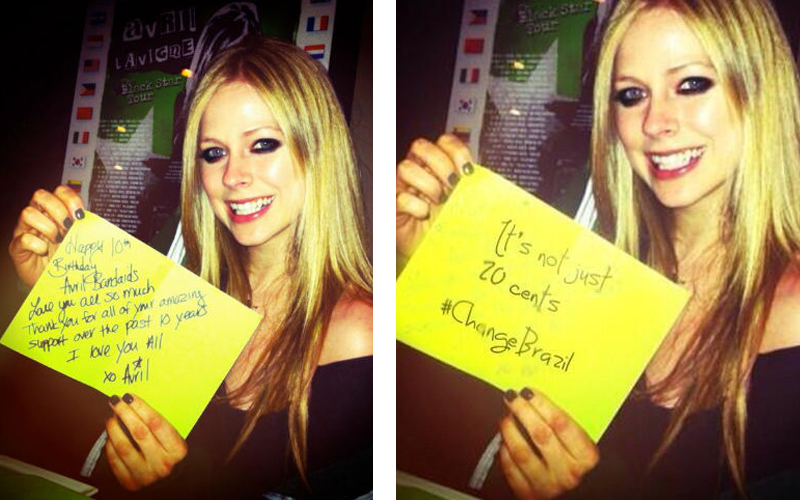 AVRIL
LAVIGNE
The
Black Star
Tour
Happy 10th
Birthday
Avril Bandaids
Love you all so much
Thank you for all of your amazing
support over the past 10 years
I love you All
xo Avril
The
Black Star
Tour
It's not just
20 cents
#ChangeBrazil